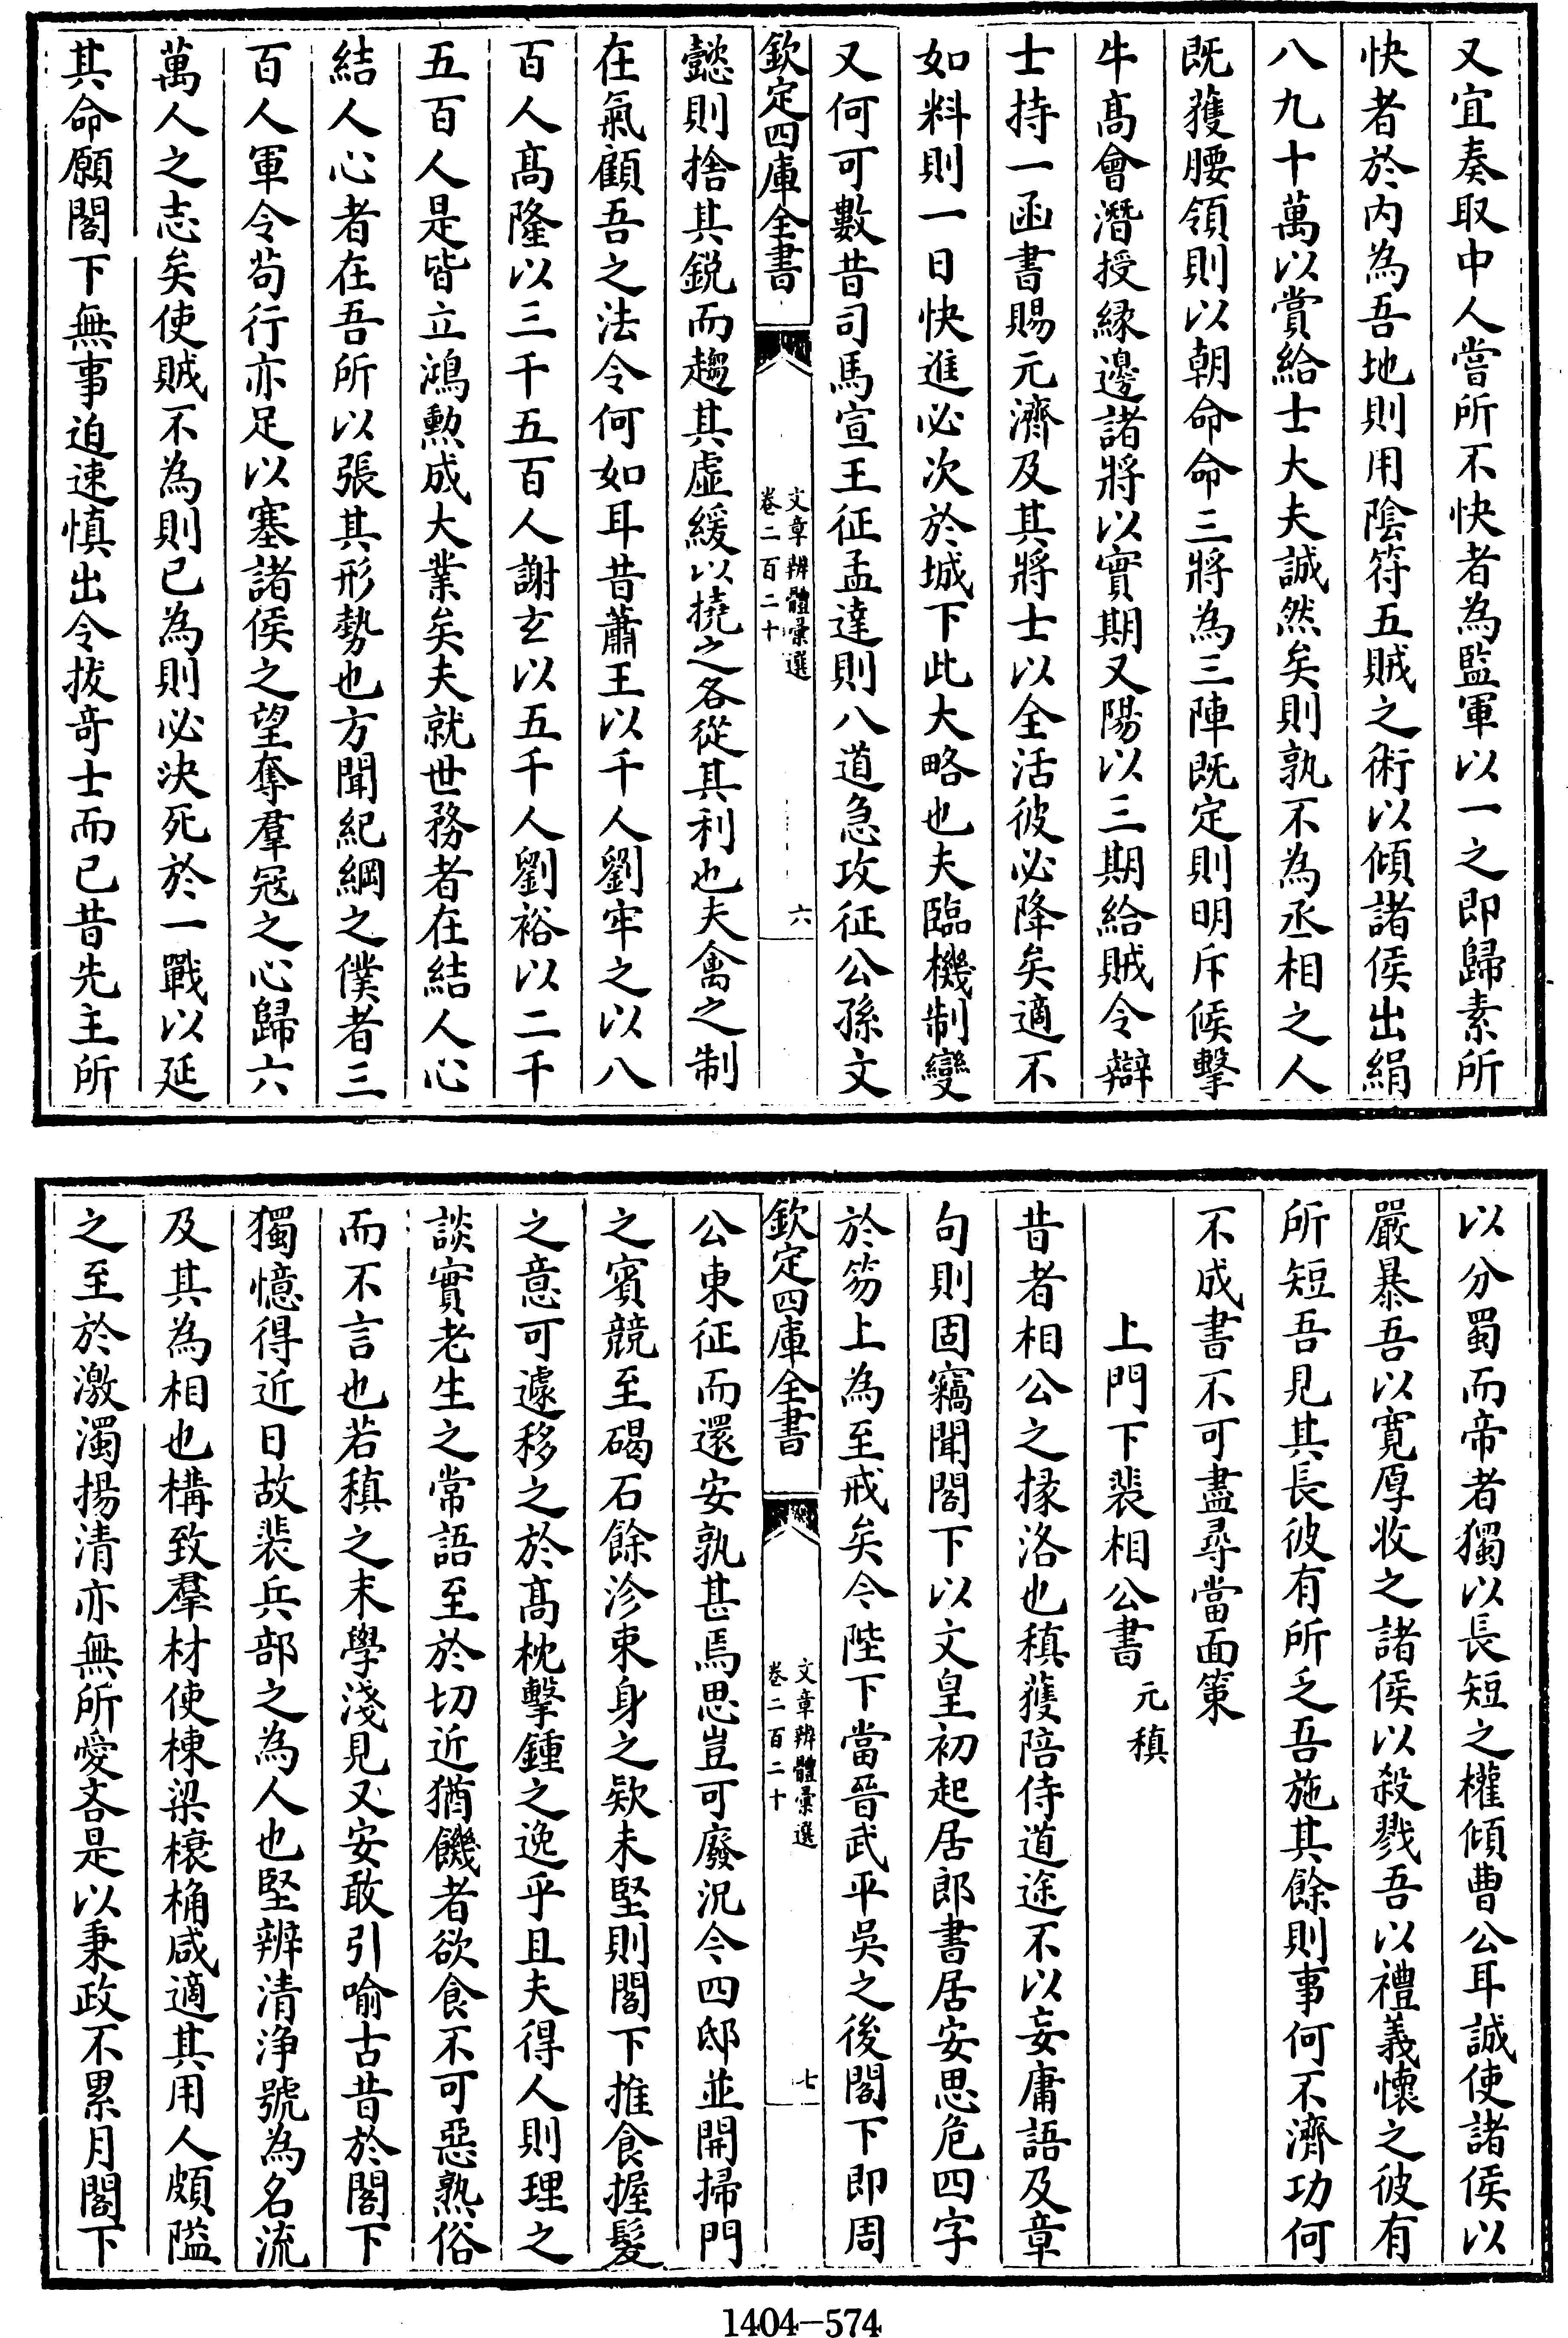 又宜奏取中人嘗所不快者為監軍以一之即歸素所
快者於内為吾地則用陰符五賊之術以傾諸侯出絹
八九十萬以賞給士大夫誠然矣則孰不為丞相之人
既獲腰領則以朝命命三將為三陣既定則明斥候擊
牛髙會潛授緣邊諸將以實期又陽以三期給賊令辯
士持一函書賜元濟及其將士以全活彼必降矣適不
如料則一日快進必次於城下此大略也夫臨機制變
又何可數昔司馬宣王征孟達則八道急攻征公孫文
欽定四庫全書
文章辨體彙選
卷二百二十
六
懿則捨其鋭而趨其虚緩以撓之各從其利也夫禽之制
在氣顧吾之法令何如耳昔蕭王以千人劉牢之以八
百人髙隆以三千五百人謝玄以五千人劉裕以二千
五百人是皆立鴻勲成大業矣夫就世務者在結人心
結人心者在吾所以張其形勢也方聞紀綱之僕者三
百人軍令茍行亦足以塞諸侯之望奪羣冦之心歸六
萬人之志矣使賊不為則已為則必决死於一戰以延
其命願閣下無事迫速慎出令拔奇士而已昔先主所
以分蜀而帝者獨以長短之權傾曹公耳誠使諸侯以
嚴暴吾以寛厚收之諸侯以殺戮吾以禮義懷之彼有
所短吾見其長彼有所乏吾施其餘則事何不濟功何
不成書不可盡尋當面策
上門下裴相公書 元稹
昔者相公之掾洛也稹獲陪侍道途不以妄庸語及章
句則固竊聞閣下以文皇初起居郎書居安思危四字
於笏上為至戒矣今陛下當晉武平吳之後閣下即周
欽定四庫全書
文章辨體彙選
卷二百二十
七
公東征而還安孰甚焉思豈可廢況今四邸並開掃門
之賓競至碣石餘沴束身之欵未堅則閣下推食握髪
之意可遽移之於髙枕擊鍾之逸乎且夫得人則理之
談實老生之常語至於切近猶饑者欲食不可惡熟俗
而不言也若稹之末學淺見又安敢引喻古昔於閣下
獨憶得近日故裴兵部之為人也堅辨清浄號為名流
及其為相也構致羣材使棟梁榱桷咸適其用人頗隘
之至於激濁揚清亦無所愛吝是以秉政不累月閣下
1404-574